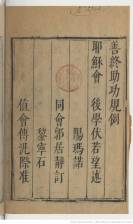 善終助功規例
耶穌會 後學伏若望述
陽瑪諾
同會郭居靜訂
黎寧石
值會傅汎際准